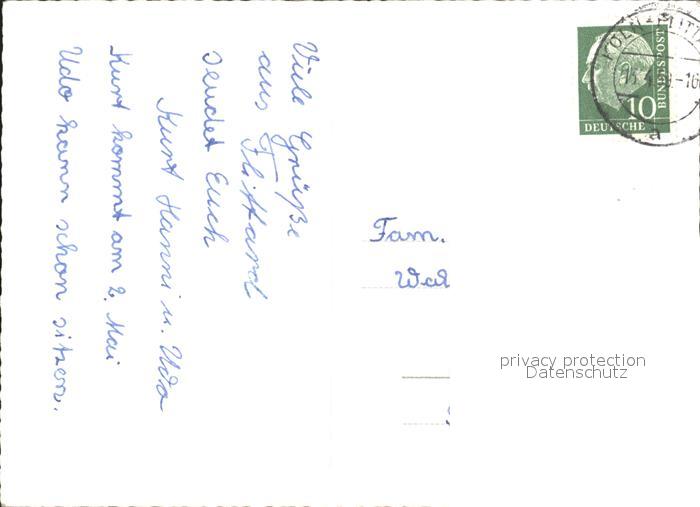 Viele Grüße
aus Flittard
sendet Euch
Kurt Hanni u. Udo
Kurt kommt am 2. Mai
Udo kann schon sitzen.
Fam.
DEUTSCHE
BUNDESPOST
10
KÖLN-FLITTA
-16
a
privacy protection
Datenschutz